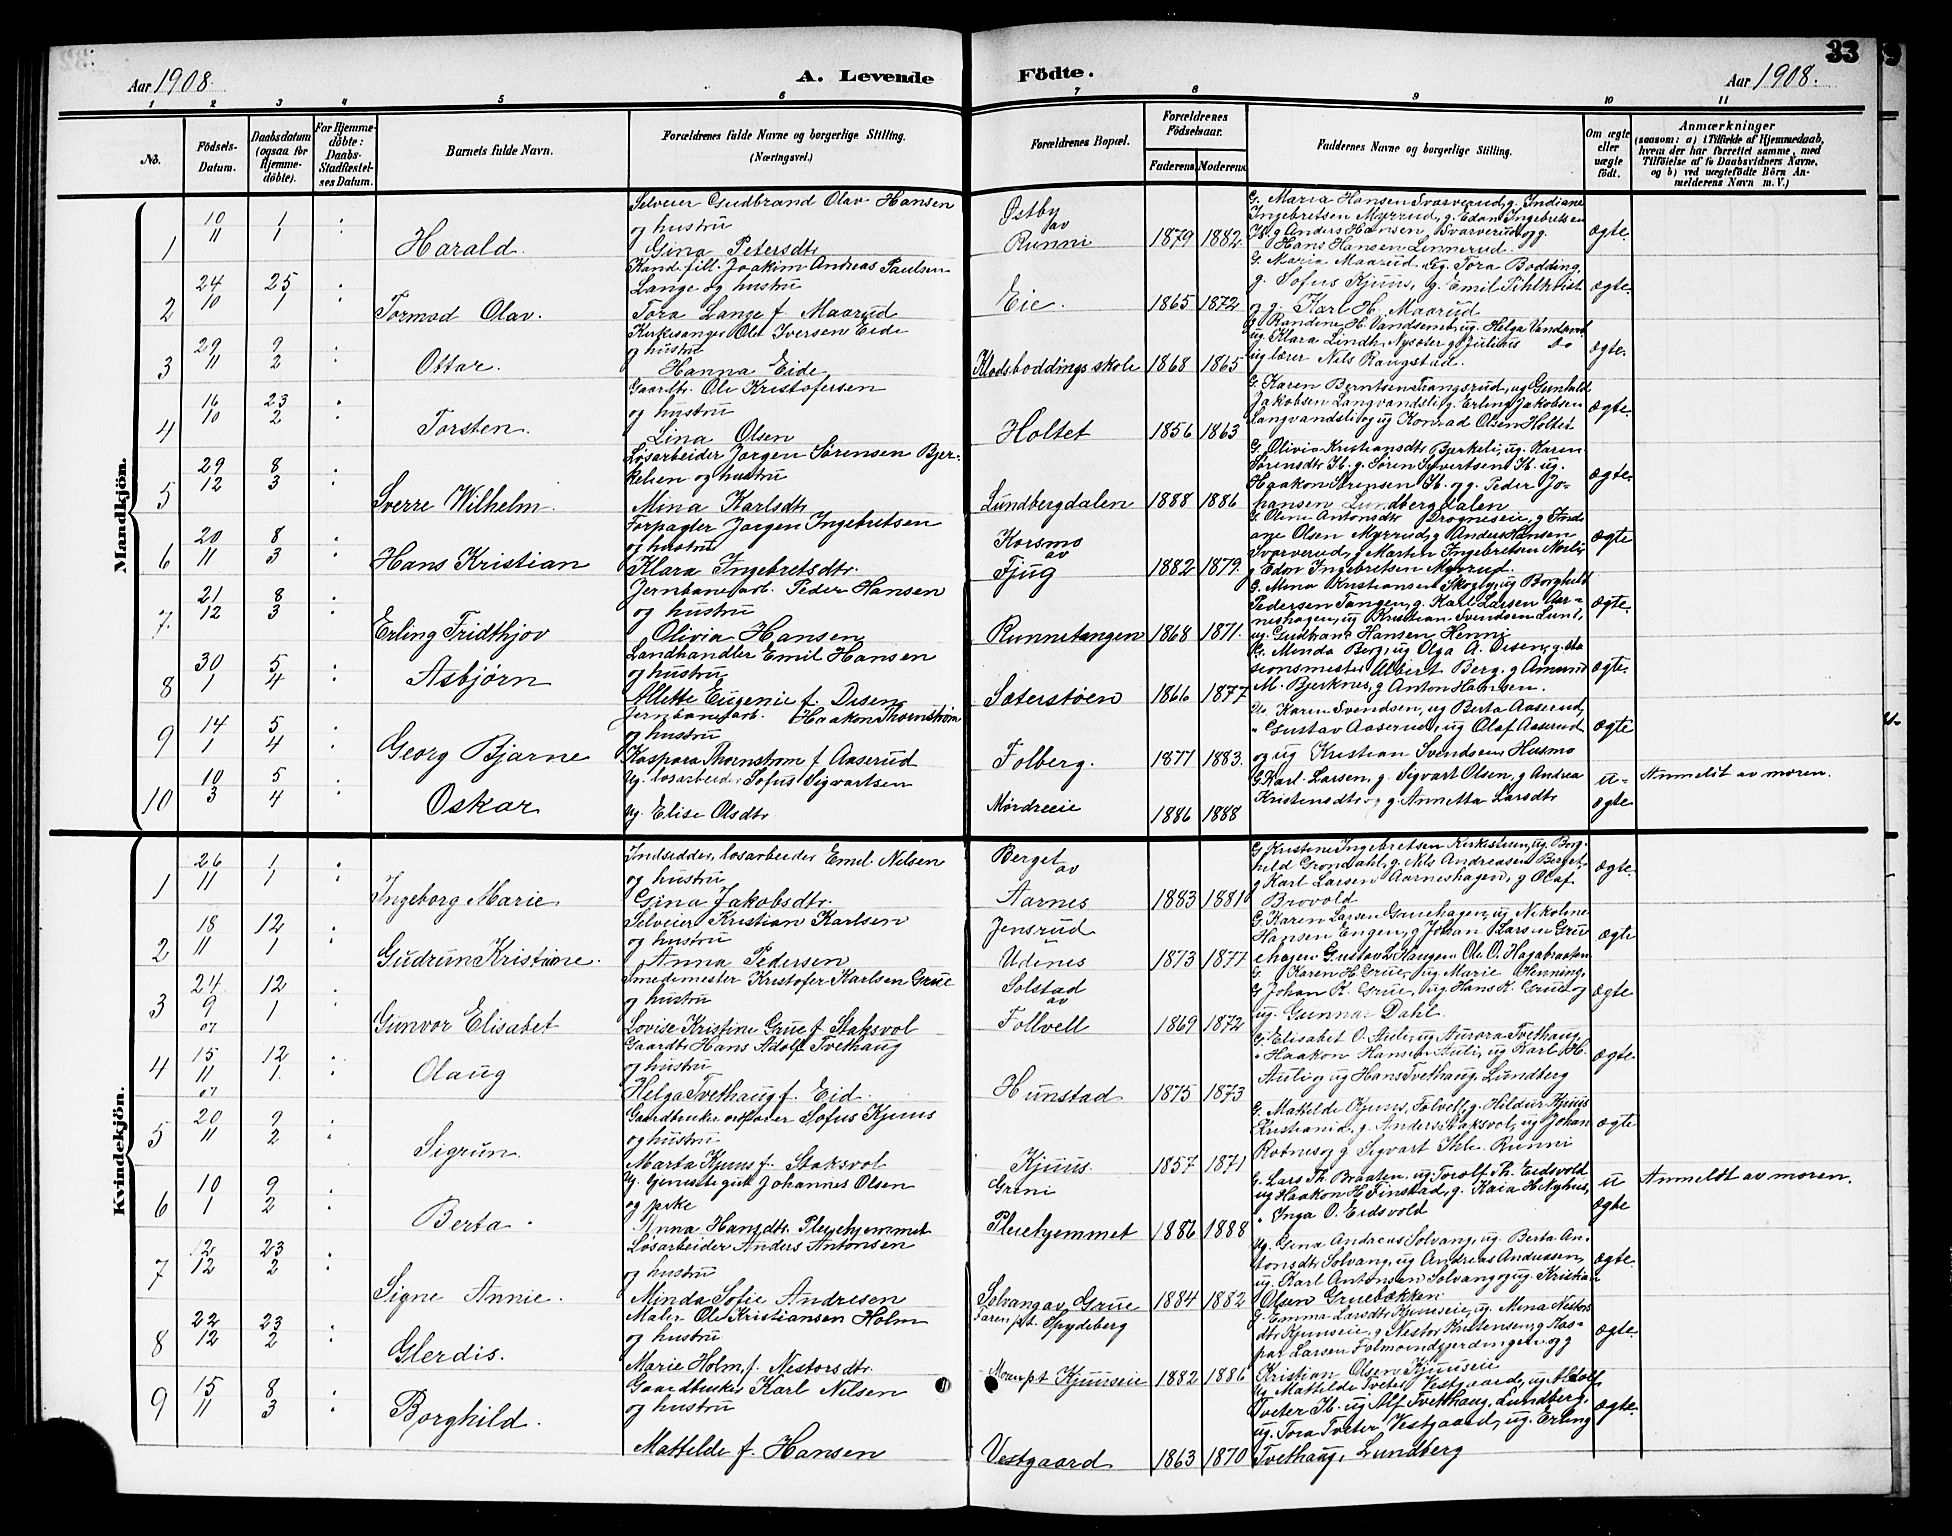 33
Aar 1908.
A. Levende Födte.
Aar 1908.
1 2 3 4 5 6 7 8 9 10 11
No.
Födsels-Datum.
Daabsdatum (ogsaa for Hjemme-döbte).
For Hjemme-döbte: Daabs-Stadfæstel-ses Datum.
Barnets fulde Navn.
Forældrenes fulde Navne og borgerlige Stilling.
(Næringsvei.)
Forældrenes Bopæl.
Forældrenes Födselsaar.
Faderens. Moderens.
Faddernes Navne og borgerlige Stilling.
Om ægte eller uægte født.
Anmærkninger
(saasom: a) i Tilfælde af Hjemmedaab, hvem der har forrettet samme, med Tilföielse af to Daabsvidners Navne, og b) ved uægtefödte Börn An-melderens Navn m. V.)
Mandkjön.
1 10/11 1/1 Harald.
Selveier Gudbrand Olav Hansen
og hustru
Gina Petersdtr
Østby
av
Runni
1879 1882
G. Maria Hansen Svarverud, g. Indiane
Ingebretsen Myrrud, g. Edon Ingebretsen
Ib. g Anders Hansen Svarverud og g.
Hans Hansen Linnerud.
ægte.
2 24/10 25/1 Tormod Olav.
Kand. fill. Joakim Andreas Paulsen
Lange og hustru
Tora Lange f. Maarud
Eie.
1865 1872
G. Maria Maarud, ug. Tora Bodding,
g. Sofus Kjuus, g. Emil Pihlkvist
og g. Karl H. Maarud
ægte.
3 29/11 9/2 Ottar.
Kirkesanger Ole Iversen Eide
og hustru
Hanna Eide
Klodsboddings skole
1868 1865
G Randine H. Vandsemb, ug. Helga Vandsemb
ug. Klara Lindh, Nysæter g Julius Do
ug lærer Nils Raugstad.
ægte.
4 16/10 23/2 Torsten.
Gaardbr. Ole Kristofersen
og hustru
Lina Olsen
Holtet
1856 1863
G. Karen Berntsen Trangsrud, ug Gunhild
Jakobsen Langvandsli, g. Erling Jakobsen
Langvandsli og ug Konrad Olsen Holtet
ægte.
5 29/12 8/3 Sverre Wilhelm.
Løsarbeider Jørgen Sørensen Bjer-
kelien og hustru
Mina Karlsdtr
Lundbergdalen
1888 1886
G. Olivia Kristiansdtr Bjerkeli, ug. Karen
Sørensdtr Ib. g. Søren Syvertsen Ib. ug.
Haakon Sørensen Ib. og g. Peder Jo-
hansen Lundbergdalen
ægte.
6 20/11 8/3 Hans Kristian
Forpagter Jørgen Ingebretsen
og hustru
Klara Ingebretsdtr.
Korsmo
av
Fjug
1882 1879.
G. Oline Antonsdtr Brogneseie, g Indi
ane Olsen Myrrud, g Anders Hansen
Svarverud, g Martin Ingebretsen Norli,
g Edon Ingebretsen Myrrud.
ægte
7. 21/12 8/3 Erling Fridthjov
Jernbanearb. Peder Hansen
og hustru
Olivia Hansen
Runnetangen
1868 1871.
G. Mina Kristiansen Skogly, ug Borghild
Pedersen Tangen, g. Karl Larsen Aar-
neshagen, ug Kristian Svendsen Lund,
ug. Gudbrand Hansen Henni
ægte.
8 30/1 5/4 Asbjørn
Landhandler Emil Hansen
og hustru
Allette Eugenie f. Disen
Sæterstøen
1866 1877
G. Minda Berg, ug Olga A. Disen, g. sta
sionsmester Albert Berg, g Amund
M. Bjerknes, g Anton Hansen.
ægte.
9 14/1 5/4 Georg Bjarne
Jernbanearb. Haakon Thornstrøm
og hustru
Kaspara Thornstrøm f Aaserud
Folberg.
1877 1883.
Ug Karen Svendsen, ug Berta Aaserud,
" Gustav Aaserud, ug Olaf Aaserud
og ug Kristian Svendsen Husmo
ægte
10 10/3 5/4 Oskar
Ug. løsarbeider Sofus Sigvartsen
Ug. Elise Olsdtr
Mørdreeie
1886 1888
G Karl Larsen, g. Sigvart Olsen, g Andrea
Kristensdtr og g. Annetta Larsdtr
u-
ægte
Anmeldt av moren.
Kvindekjön.
1 26/11 1/1 Ingeborg Marie
Indsidder, løsarbeider Emil Nilsen
og hustru
Gina Jakobsdtr.
Berget
av
Aarnes
1883 1881
G Kristine Ingebretsen Kirkestuen, ug. Borg-
hild Grøndahl, g. Nils Andreasen Berget,
g Karl Larsen Aarneshagen, g Olaf
Brovold
ægte.
2 18/11 12/1 Gudrun Kristiane.
Selveier Kristian Karlsen
og hustru
Anna Pedersen
Jensrud
Udenes
1873 1877
G. Karen Larsen Gruehagen, ug Nikoline
Hansen Engen, g Johan Larsen Gru
ehagen Gustav L. Haugen Ole O. Hagabraaten
ægte
3 24/9 07 12/1 Gunvor Elisabet
Smedemester Kristofer Karlsen Grue
og hustru
Lovise Kristine Grue f. Staksvol
Solstad
av
Follvell
1869 1872
G Karen H Grue, ug Marie Henning,
G Johan K. Grue, ug. Hans K. Grue og
ug. Gunnar Dahl.
ægte
4 15/11 07 12/1. Olaug
Gaardbr Hans Adolf Tvethaug
og hustru
Helga Tvethaug f. Eid.
Hunstad
1875 1873
G. Elisabet O. Auli, ug Aurora Tvethaug
" Haakon Hansen Auli, ug Karl H.
Auli og ug Hans Tvethaug, Lundberg
ægte.
5 20/11 9/2 Sigrun.
Gaardbruker ordfører Sofus Kjuus
og hustru
Marta Kjuus f. Staksvol
Kjuus.
1857 1871
G. Mathilde Kjuus, Folvell, g. Hildur Kjuus
Kristiania, g. Anders Staksvol, ug Johan
Rotnes og g Sigvart Ihle Runni
ægte
6 10/1 9/2 Berta
Ug. tjenestegut Johannes Olsen
og pike
Anna Hansdtr. Pleiehjemmet
Greni
Pleiehjemmet
1886 1888
G. Lars Th. Braaten, ug Torolf Th. Eidsvold
ug Haakon H. Finstad, g. Kaia H. Nyhus,
" Inga O. Eidsvold
u
ægte
Anmeldt av moren.
7 12/12 23/2 Signe Annie.
Løsarbeider Anders Antonsen
og hustru
Minda Sofie Andresen
Solvang av Grue
1884 1882
Ug. Gina Andreas Solvang, ug. Berta An-
tonsdtr Solvang, ug Andreas Andreasen,
ug. Karl Antonsen Solvang og ug. Kristian
Olsen Gruebækken
ægte.
8 22/12 23/2 Glerdis.
Maler Ole Kristiansen Holm
og hustru
Marie Holm, f. Nestorsdtr.
Faren p.t. Spydeberg
Moren p.t Kjuuseie
1882 1886
G. Emma Larsdtr Kjuuseie, ug. Mina Nestors
dtr Kjuuseie, g Nestor Kristensen, g Kas-
par Larsen Folmoindgjerdingen og g
Kristian Olsen Kjuuseie
ægte.
9 15/11 8/3 Borghild.
Gaardbruker Karl Nilsen
og hustru
Mathilde f. Hansen
Vestgaard
1863 1870
Ug Mathilde Tveter Vestgaard, ug Adolf
Tveter Ib. ug Alf Tvethaug, Lundberg,
ug. Tora Tveter Vestgaard, ug. Erling
Tvethaug, Lundberg
ægte.